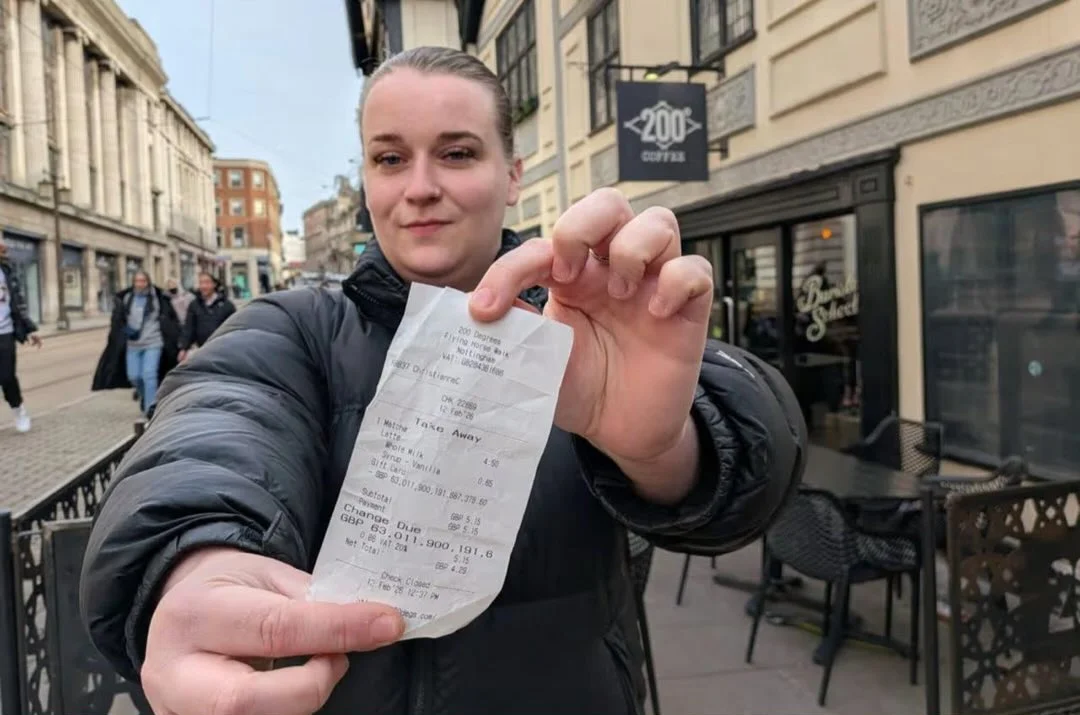 200°
COFFEE
Barista
School
200 Degrees
Flying Horse Walk
Nottingham
VAT: GB294381686
ChristianneC
CHK 22669
12 Feb'26
Take Away
1 Matcha 4.50
Latte
Whole Milk
Syrup - Vanilla 0.65
Gift Card
GBP 63,011,900,191,687,379.60
Subtotal GBP 5.15
Payment GBP 5.15
Change Due
GBP 63,011,900,191,6
0.86 VAT 20% 5.15
Net Total GBP 4.29
Check Closed
12 Feb'26 12:37 PM